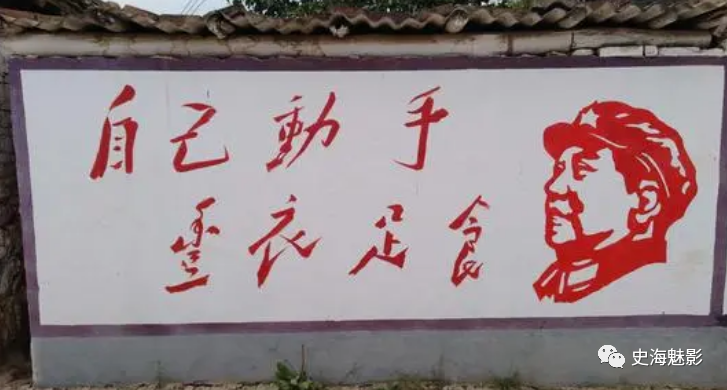 自己動手
豊衣足食
史海魅影